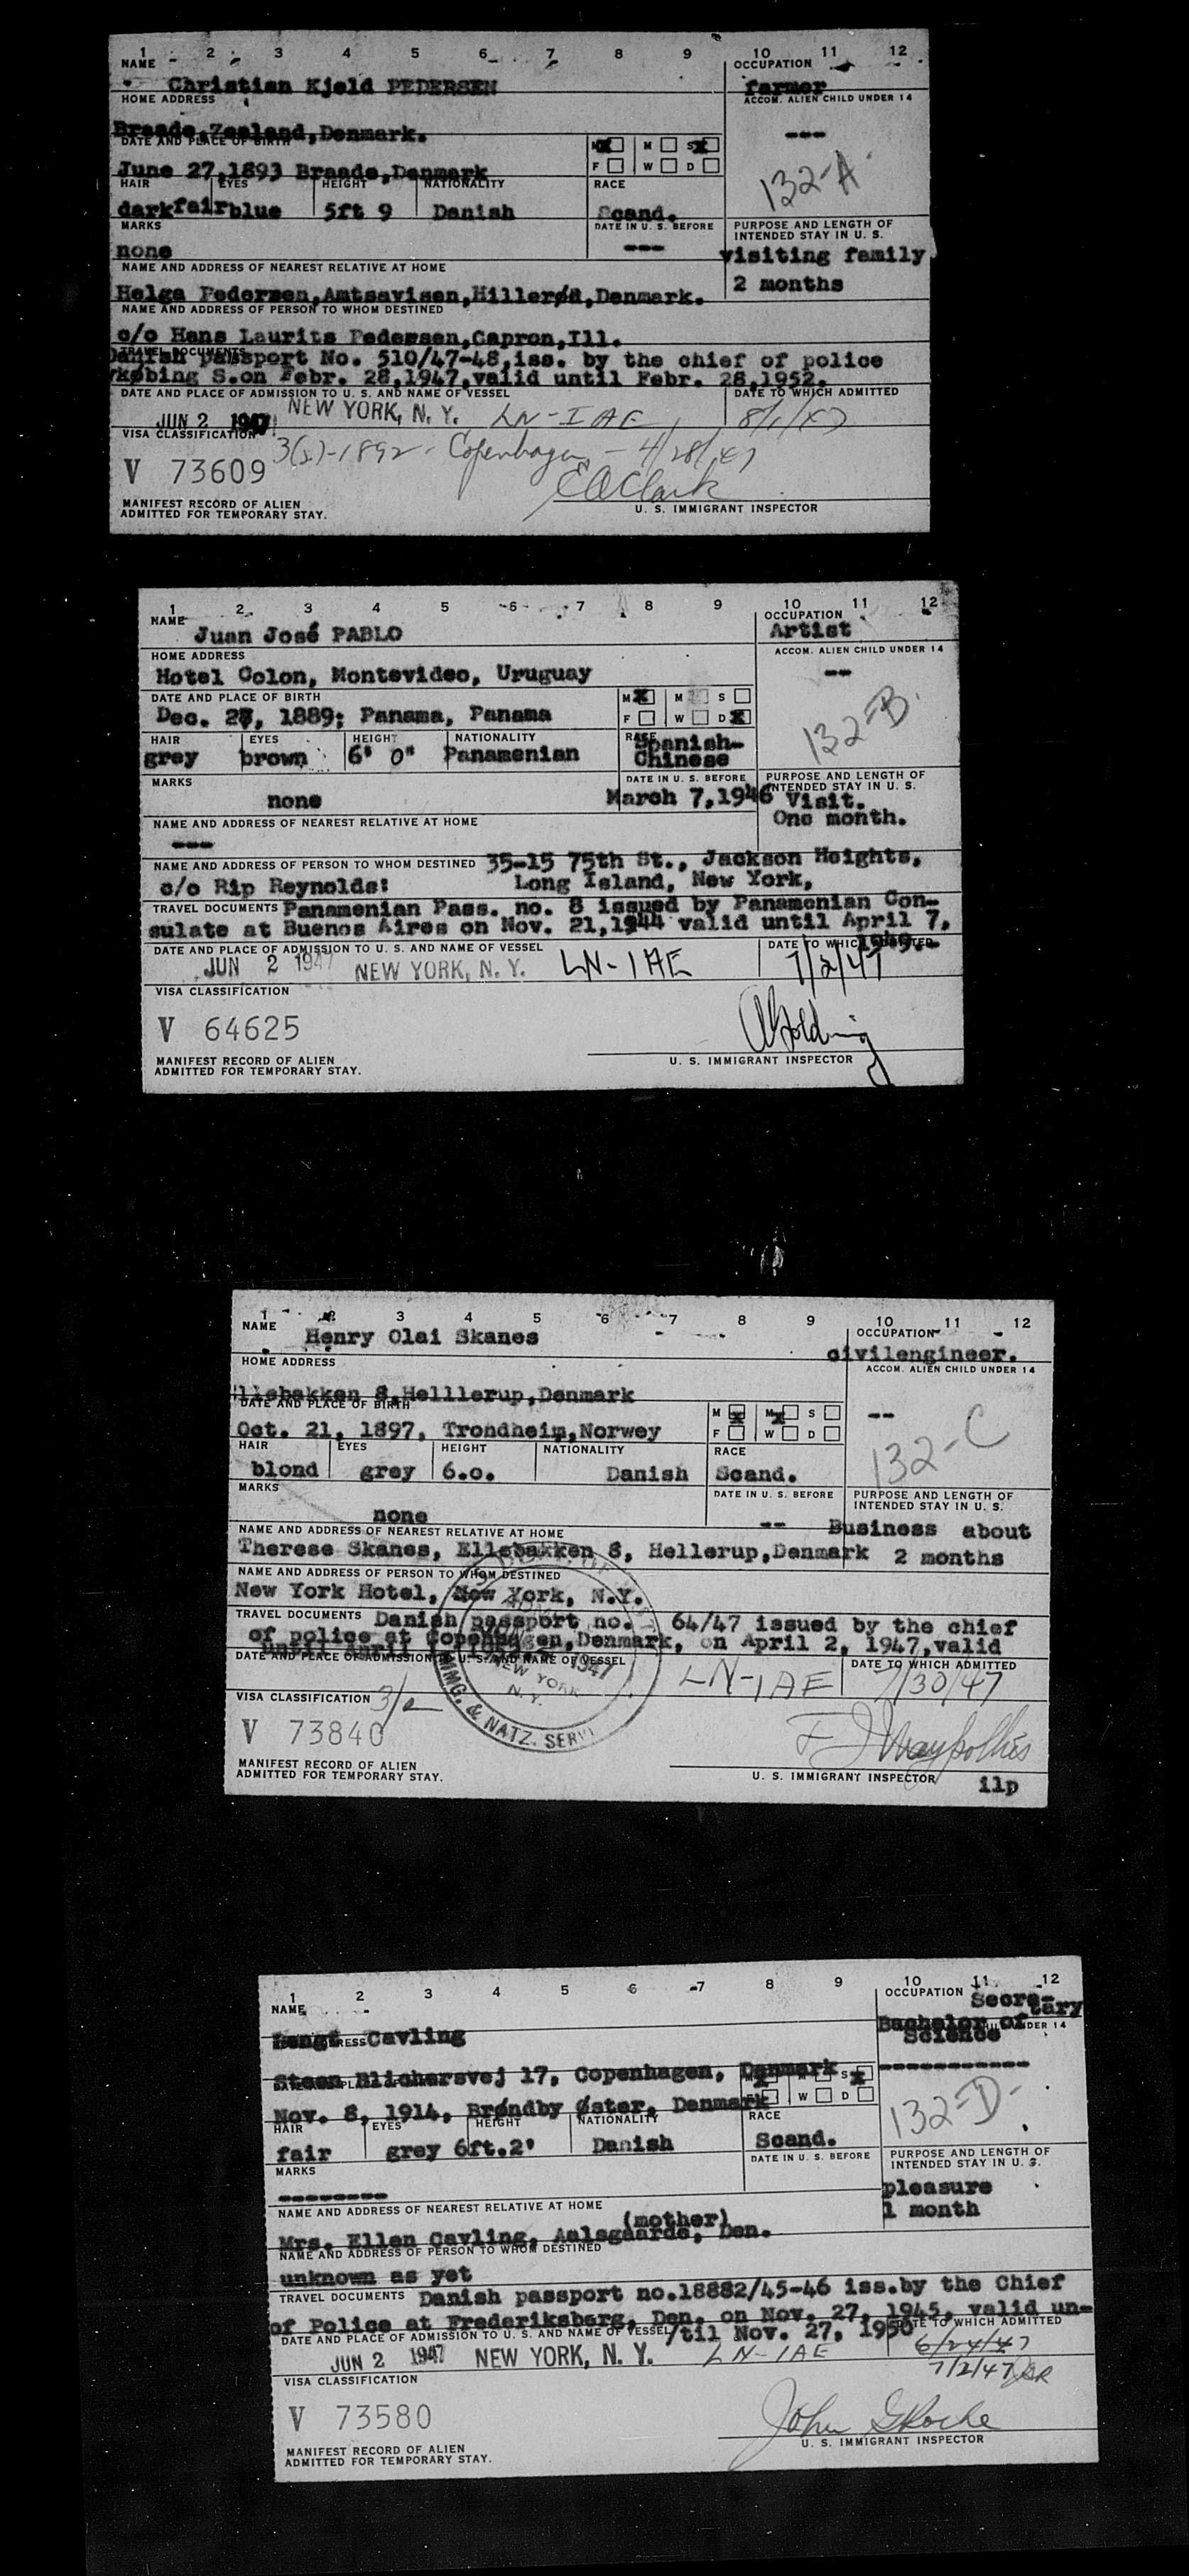 1 2 3 4 5 6 7 8 9 10 11 12
NAME OCCUPATION
Christian Kjeld PEDERSEN farmer
HOME ADDRESS ACCOM. ALIEN CHILD UNDER 14
Braade,Zealand,Denmark. ---
DATE AND PLACE OF BIRTH M M S
June 27,1893 Braade,Denmark F W D
132-A
HAIR EYES HEIGHT NATIONALITY RACE
darkfair blue 5ft 9 Danish Scand.
MARKS DATE IN U. S. BEFORE PURPOSE AND LENGTH OF INTENDED STAY IN U. S.
none --- visiting family
NAME AND ADDRESS OF NEAREST RELATIVE AT HOME
2 months
Helga Pedersen,Amtsavisen,Hillerød,Denmark.
NAME AND ADDRESS OF PERSON TO WHOM DESTINED
c/o Hans Laurits Pedersen,Capron,Ill.
TRAVEL DOCUMENTS
Danish passport No. 510/47-48,iss. by the chief of police
ykøbing S.on Febr. 28,1947,valid until Febr. 28,1952.
DATE AND PLACE OF ADMISSION TO U. S. AND NAME OF VESSEL DATE TO WHICH ADMITTED
JUN 2 1947 NEW YORK, N. Y. LN-IAE 8/1/47
VISA CLASSIFICATION 3(2)-1892 - Copenhagen - 4/28/47
V 73609
E A Clark
MANIFEST RECORD OF ALIEN
ADMITTED FOR TEMPORARY STAY.
U. S. IMMIGRANT INSPECTOR
1 2 3 4 5 6 7 8 9 10 11 12
NAME OCCUPATION
Juan José PABLO Artist
HOME ADDRESS ACCOM. ALIEN CHILD UNDER 14
Hotel Colon, Montevideo, Uruguay --
DATE AND PLACE OF BIRTH M M S
Dec. 27, 1889; Panama, Panama F W D
132-B
HAIR EYES HEIGHT NATIONALITY RACE
grey brown 6' 0" Panamenian Spanish-Chinese
MARKS DATE IN U. S. BEFORE PURPOSE AND LENGTH OF INTENDED STAY IN U. S.
none March 7,1946 Visit.
One month.
NAME AND ADDRESS OF NEAREST RELATIVE AT HOME
---
NAME AND ADDRESS OF PERSON TO WHOM DESTINED 35-15 75th St., Jackson Heights,
c/o Rip Reynolds: Long Island, New York,
TRAVEL DOCUMENTS Panamenian Pass. no. 8 issued by Panamenian Con-
sulate at Buenos Aires on Nov. 21,1944 valid until April 7,
1949.
DATE AND PLACE OF ADMISSION TO U. S. AND NAME OF VESSEL DATE TO WHICH ADMITTED
JUN 2 1947 NEW YORK, N. Y. LN-IAE 7/2/47
VISA CLASSIFICATION
V 64625
MANIFEST RECORD OF ALIEN
ADMITTED FOR TEMPORARY STAY.
U. S. IMMIGRANT INSPECTOR
1 2 3 4 5 6 7 8 9 10 11 12
NAME OCCUPATION
Henry Olai Skanes civilengineer.
HOME ADDRESS ACCOM. ALIEN CHILD UNDER 14
llebakken 8,Helllerup,Denmark --
DATE AND PLACE OF BIRTH M M S
Oct. 21, 1897, Trondheim,Norwey F W D
132-C
HAIR EYES HEIGHT NATIONALITY RACE
blond grey 6.o. Danish Scand.
MARKS DATE IN U. S. BEFORE PURPOSE AND LENGTH OF INTENDED STAY IN U. S.
none -- Business about
NAME AND ADDRESS OF NEAREST RELATIVE AT HOME
Therese Skanes, Ellebakken 8, Hellerup,Denmark 2 months
NAME AND ADDRESS OF PERSON TO WHOM DESTINED
New York Hotel, New York, N.Y.
TRAVEL DOCUMENTS Danish passport no. 64/47 issued by the chief
of police at Copenhagen,Denmark, on April 2, 1947,valid
until April
DATE AND PLACE OF ADMISSION TO U. S. AND NAME OF VESSEL DATE TO WHICH ADMITTED
1947 NEW YORK N. Y. IMMG. & NATZ. SERV.
LN-IAE 7/30/47
VISA CLASSIFICATION 3/2
V 73840
MANIFEST RECORD OF ALIEN
ADMITTED FOR TEMPORARY STAY.
U. S. IMMIGRANT INSPECTOR
ilp
1 2 3 4 5 6 7 8 9 10 11 12
NAME OCCUPATION Secre-
tary
Bengt Cavling Bachelor of
Science
Steen Blichersvej 17, Copenhagen, Denmark -----------
S
Nov. 8, 1914, Brøndby Øster, Denmark W D
132-D-
HAIR EYES HEIGHT NATIONALITY RACE
fair grey 6ft.2' Danish Scand.
MARKS DATE IN U. S. BEFORE PURPOSE AND LENGTH OF INTENDED STAY IN U. S.
-------- pleasure
1 month
NAME AND ADDRESS OF NEAREST RELATIVE AT HOME
(mother)
Mrs. Ellen Cavling, Aalsgaarde, Den.
NAME AND ADDRESS OF PERSON TO WHOM DESTINED
unknown as yet
TRAVEL DOCUMENTS Danish passport no.18882/45-46 iss.by the Chief
of Police at Frederiksberg, Den. on Nov. 27, 1945, valid un-
/til Nov. 27, 1950
DATE AND PLACE OF ADMISSION TO U. S. AND NAME OF VESSEL DATE TO WHICH ADMITTED
JUN 2 1947 NEW YORK, N. Y. LN-IAE 6/24/47
7/2/47
VISA CLASSIFICATION
V 73580
John G Roche
MANIFEST RECORD OF ALIEN
ADMITTED FOR TEMPORARY STAY.
U. S. IMMIGRANT INSPECTOR